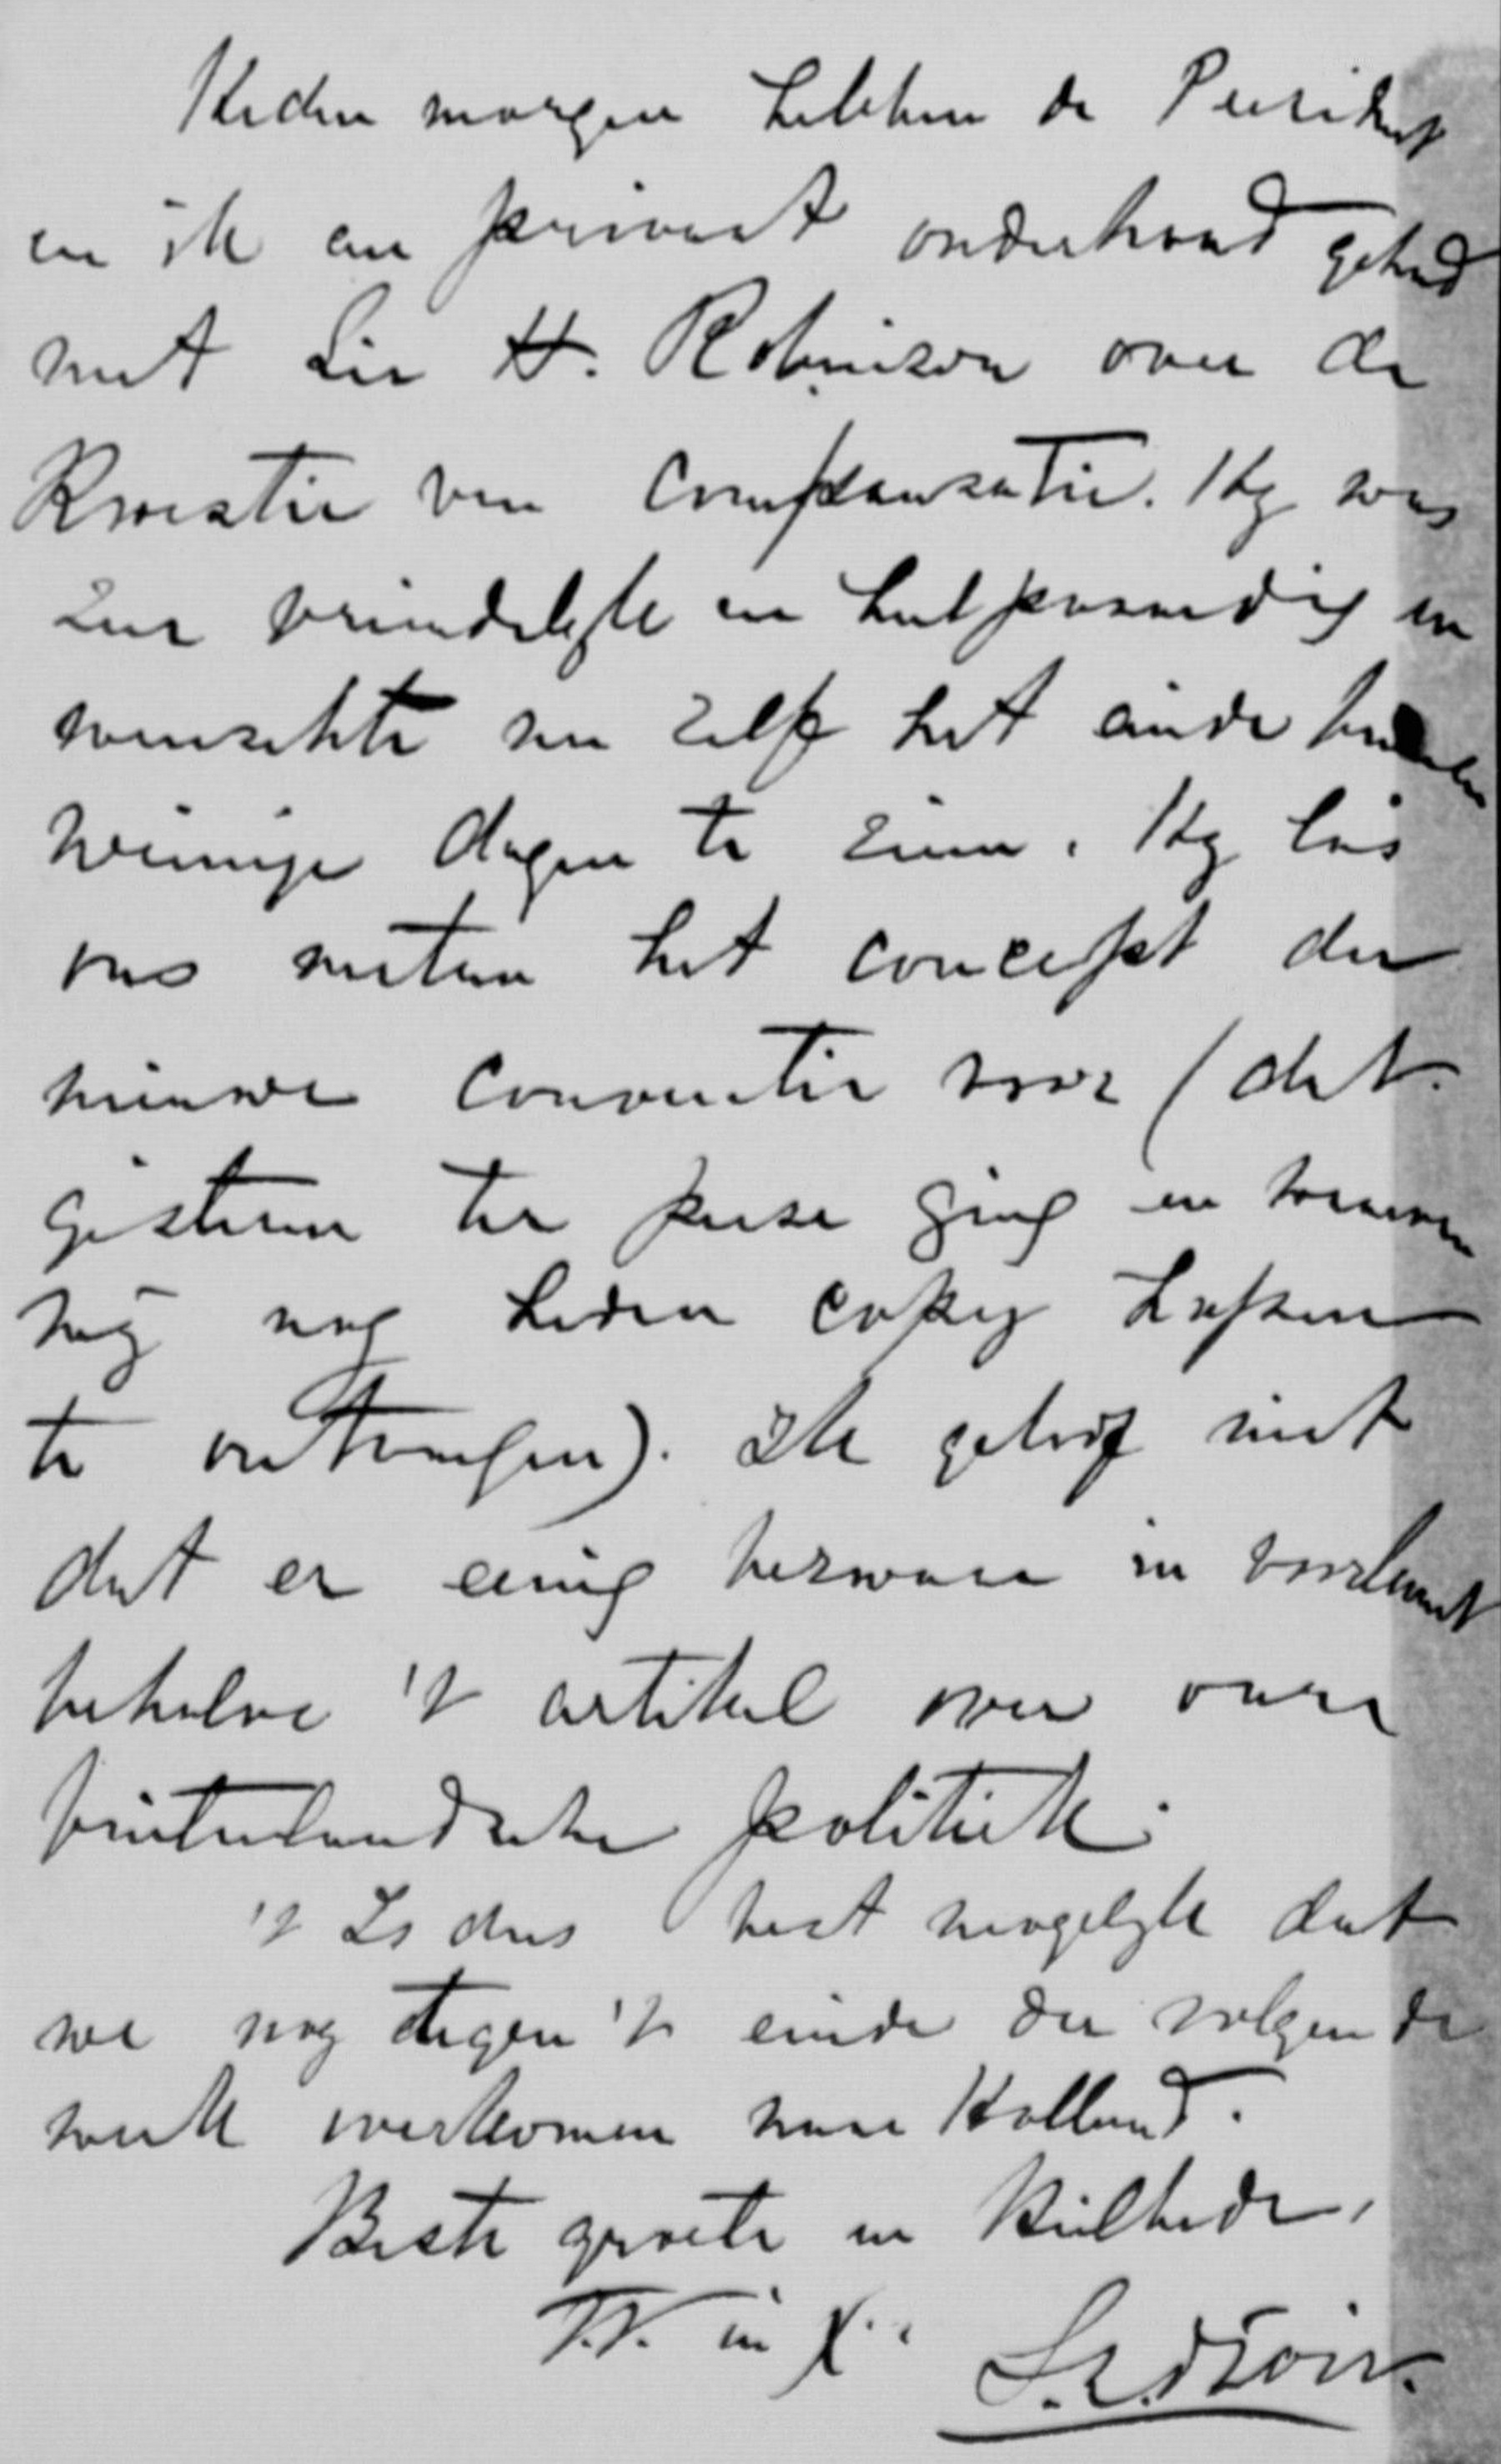 Heden morgen hebben de President
en ik een privaat onderhoud gehad
met Sir H. Robinson over de
Kwestie van Compensatie. Hy was
zeer vriendelyk en hulpvaardig en
wenschte nu zelf het einde binnen
weinige dagen te zien. Hy las
ons meteen het concept der
nieuwe Conventie voor (dat
gisteren ter perse ging en waarvan
wij nog heden copy hopen
te ontvangen). Ik geloof niet
dat er eenig bezwaar in voorkomt
behalve 't artikel over onze
buitenlandsche politiek.
't Is dus best mogelyk dat
we nog tegen 't einde der volgende
week overkomen naar Holland.
Beste groete en heilbede,
T.T. in X.
S.J. du Toit.